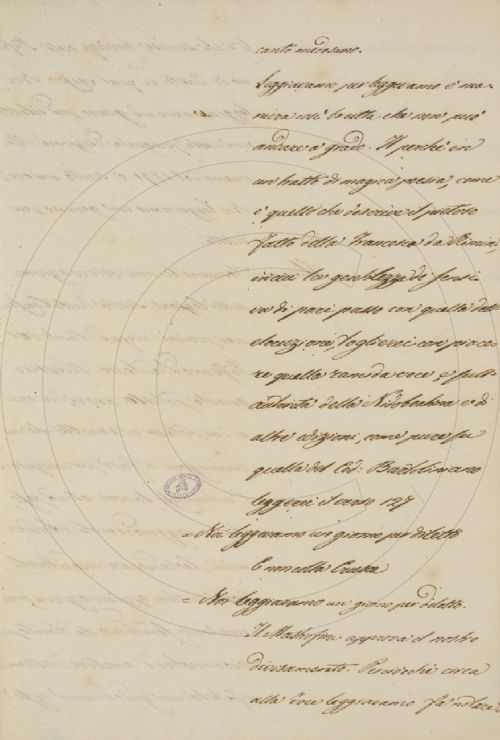 canto medesimo.
Leggiavamo per leggevamo è ma-
niera così brutta che non può
andare a grado. Il perchè in
un tratto di magica poesia, come
è quello che descrive il pietoso
fatto della Francesca da Rimini,
in cui la gentilezza de' sensi
va di pari passo con quella della
elocuzione, toglierei con piace-
re quella rancida voce, e sulla
autorità della Nidobeatina e di
altre edizioni, come pure su
quella del Cod: Bartoliniano
leggerei il verso 127
= Noi leggevamo un giorno per diletto
E non colla Crusca
= Noi leggiavamo un giorno per diletto.
Il Mastrofini approva il nostro
divisamento. Perciocchè circa
alla voce leggiavamo fa notare